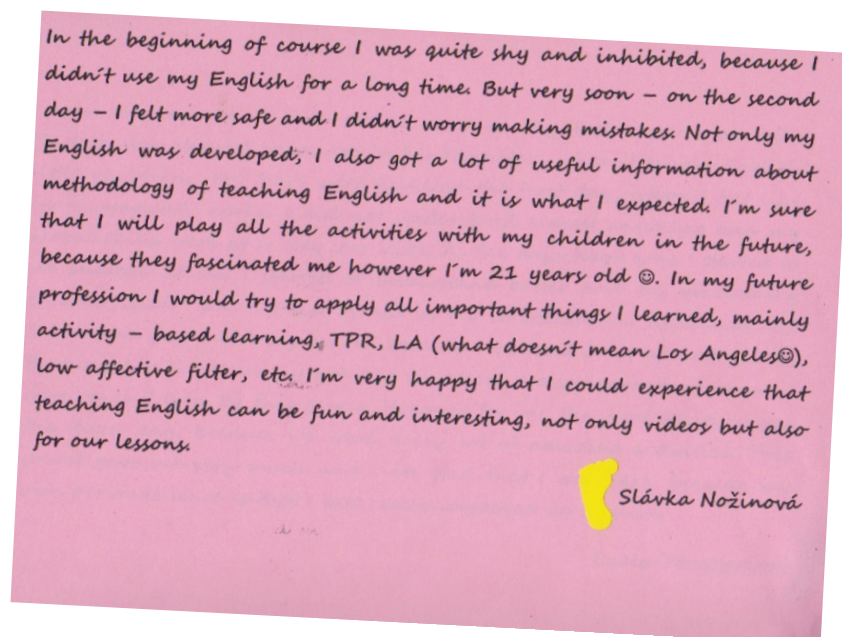 In the beginning of course I was quite shy and inhibited, because I
didn´t use my English for a long time. But very soon – on the second
day – I felt more safe and I didn´t worry making mistakes. Not only my
English was developed, I also got a lot of useful information about
methodology of teaching English and it is what I expected. I´m sure
that I will play all the activities with my children in the future,
because they fascinated me however I´m 21 years old ☺. In my future
profession I would try to apply all important things I learned, mainly
activity – based learning, TPR, LA (what doesn´t mean Los Angeles☺),
low affective filter, etc. I´m very happy that I could experience that
teaching English can be fun and interesting, not only videos but also
for our lessons.
Slávka Nožinová